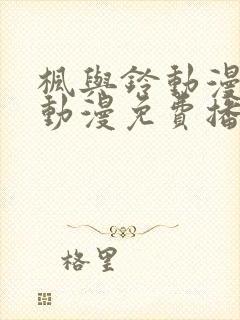 楓與鈴動漫
動漫免費播
格里